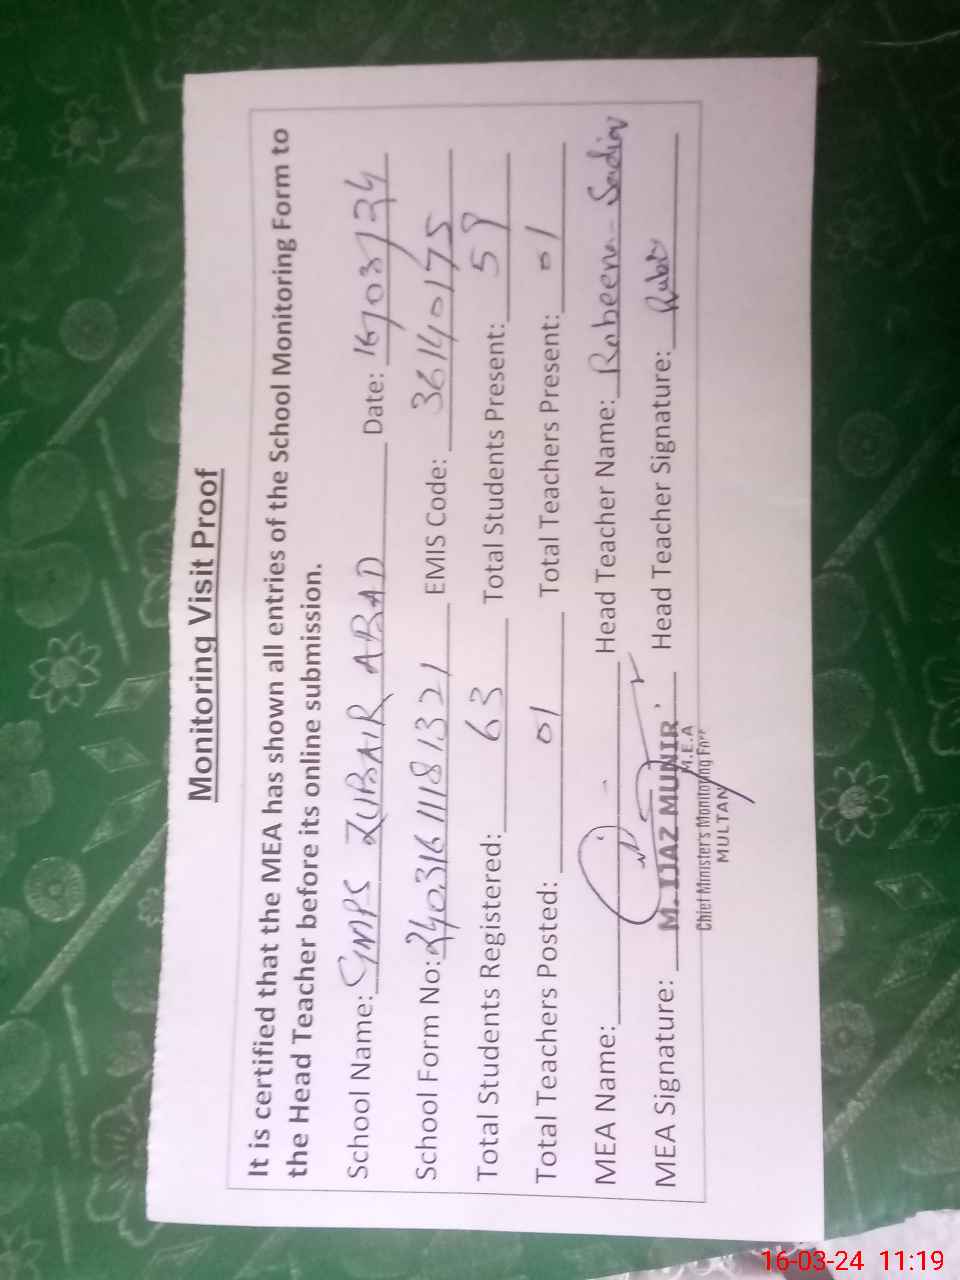 Monitoring Visit Proof
It is certified that the MEA has shown all entries of the School Monitoring Form to
the Head Teacher before its online submission.
School Name: GMPS ZUBAIR ABAD Date: 16/03/24
School Form No: 240316111181321 EMIS Code: 36140175
Total Students Registered: 63 Total Students Present: 59
Total Teachers Posted: 01 Total Teachers Present: 01
MEA Name: Head Teacher Name: Rabeena Sadiq
MEA Signature: Head Teacher Signature:
M. IJAZ MUNIR
M.E.A
Chief Minister's Monitoring Force
MULTAN
16-03-24 11:19